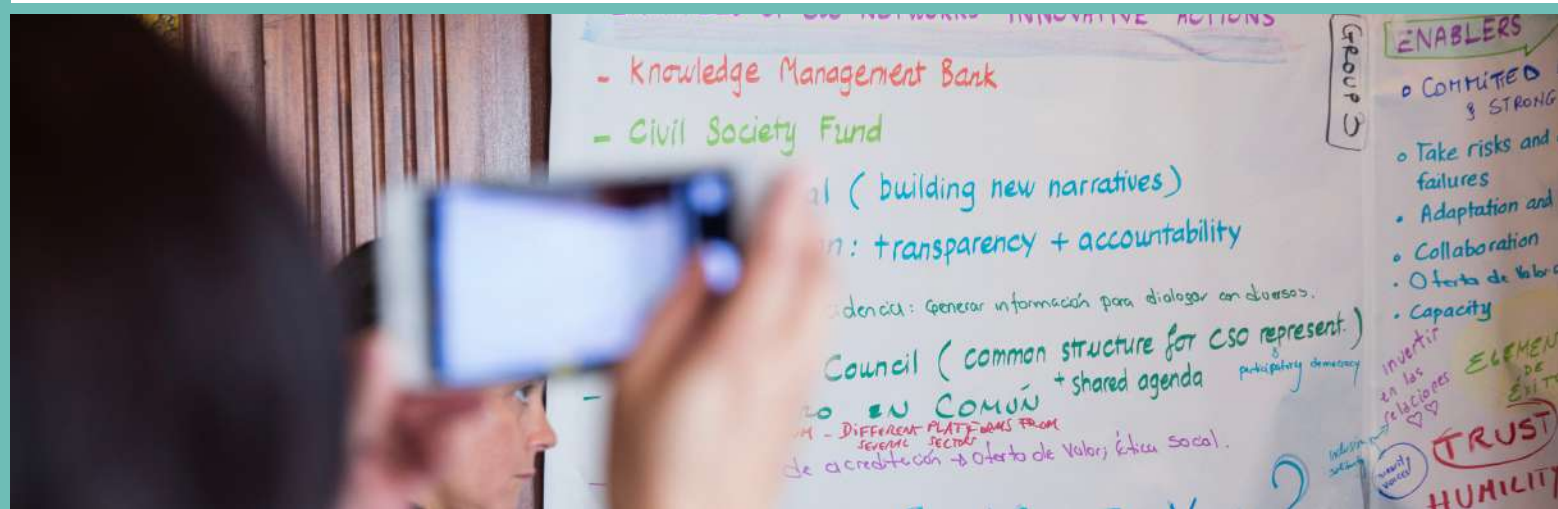 OF CSO NETWORKS INNOVATIVE ACTIONS
- Knowledge Management Bank
- Civil Society Fund
al ( building new narratives )
n: transparency + accountability
dencia: Generar información para dialogar con diversos.
Council ( common structure for CSO represent. )
+ shared agenda
participatory democracy
EN COMÚN
- DIFFERENT PLATFORMS FROM
SEVERAL SECTORS
de acreditación → Oferta de Valor, ética social.
GROUP 3
ENABLERS
COMMITED
& STRONG
Take risks and
failures
Adaptation and
Collaboration
Oferta de Valor
Capacity
invertir
en las
relaciones
ELEMEN
DE
ÉXIT
TRUST
HUMILITY